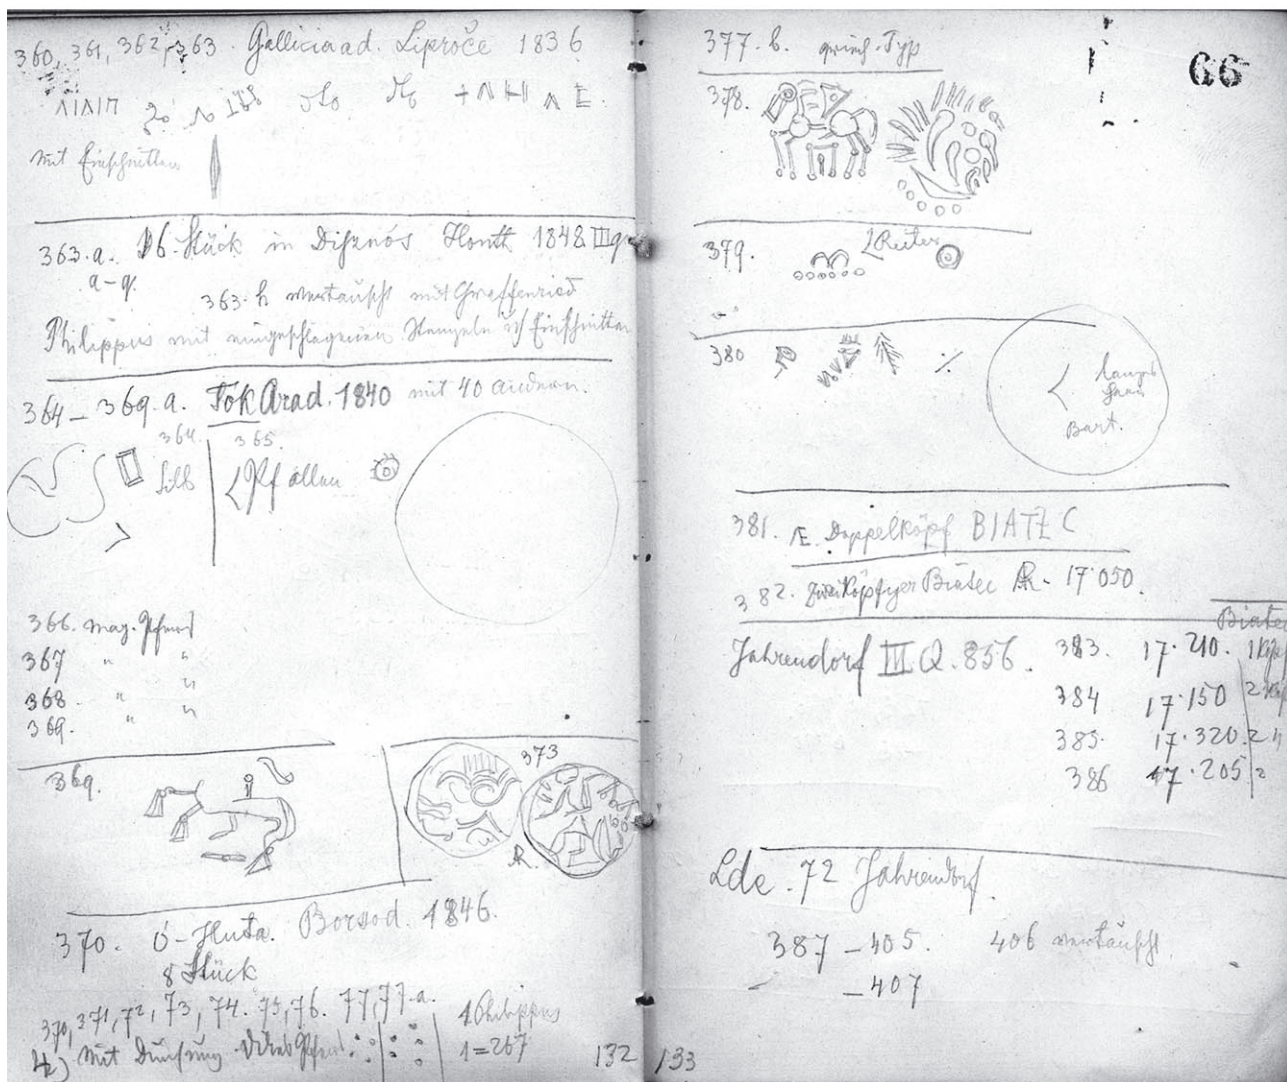 360, 361, 362, 363. Galliciaad. Liproče 1836
mit Einschnitten
363.a. 16 Stück in Disznós Honth 1848 III q
a-q.
363.h vertauscht mit Graffenried
Philippus mit eingeschlagenen Stempeln u/ Einschnitten
364 – 369.a. Tók Arad. 1840 mit 40 andern.
364. 365.
366. mag. Pferd
367 " "
368 " "
369. " "
369.
373
AR.
370. Ó-Huta. Borsod. 1846.
8 Stück
370, 371, 72, 73, 74. 75, 76. 77, 77-a. 1 Philippus
mit 1=267
132
66
377.b. griech. Typ
378.
379. Reiter
380
Bart.
381. Æ. Doppelkopf BIATEC
382. Zweiköpfiger Biatec AR. 17·050.
Biatec
Jahrendorf III. Q. 856. 383. 17·210. 1 Kopf
384 17·150 2
385. 17·320. 2 "
386 17·205 2
Lde. 72 Jahrendorf.
387 – 405. 406 vertauscht
– 407
133